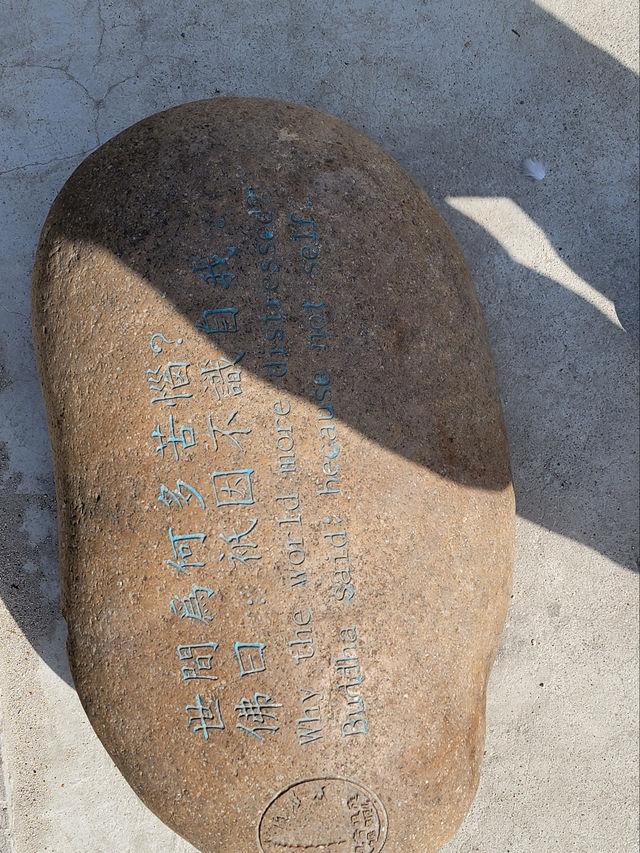 世間為何多苦惱?
佛曰:祇因不識自我。
Why the world more distressed?
Buddha said: because not self.